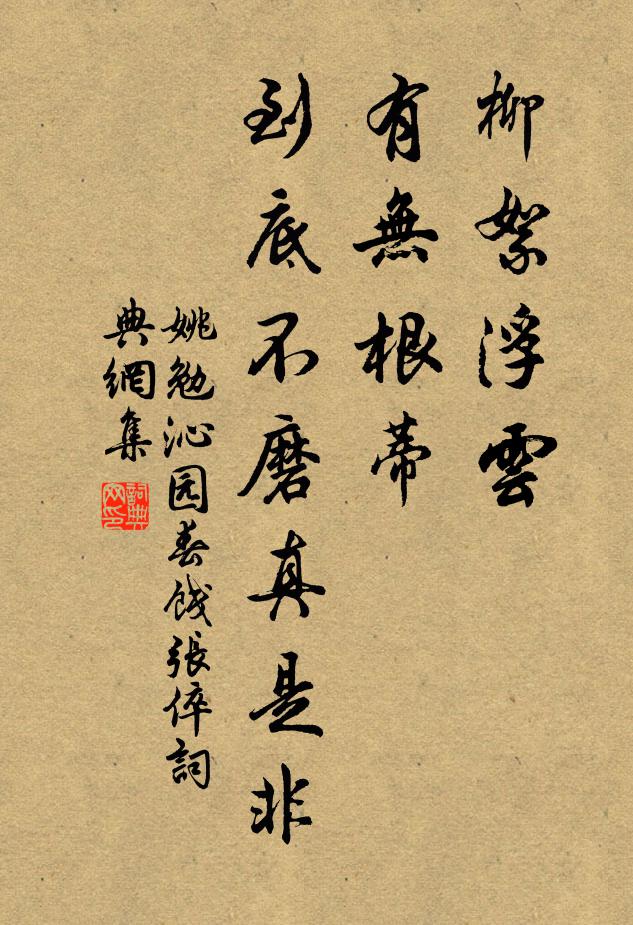 柳絮浮雲
有無根蒂
到底不磨真是非
姚勉沁园春餞張倅詞
典網集
詞典
网印